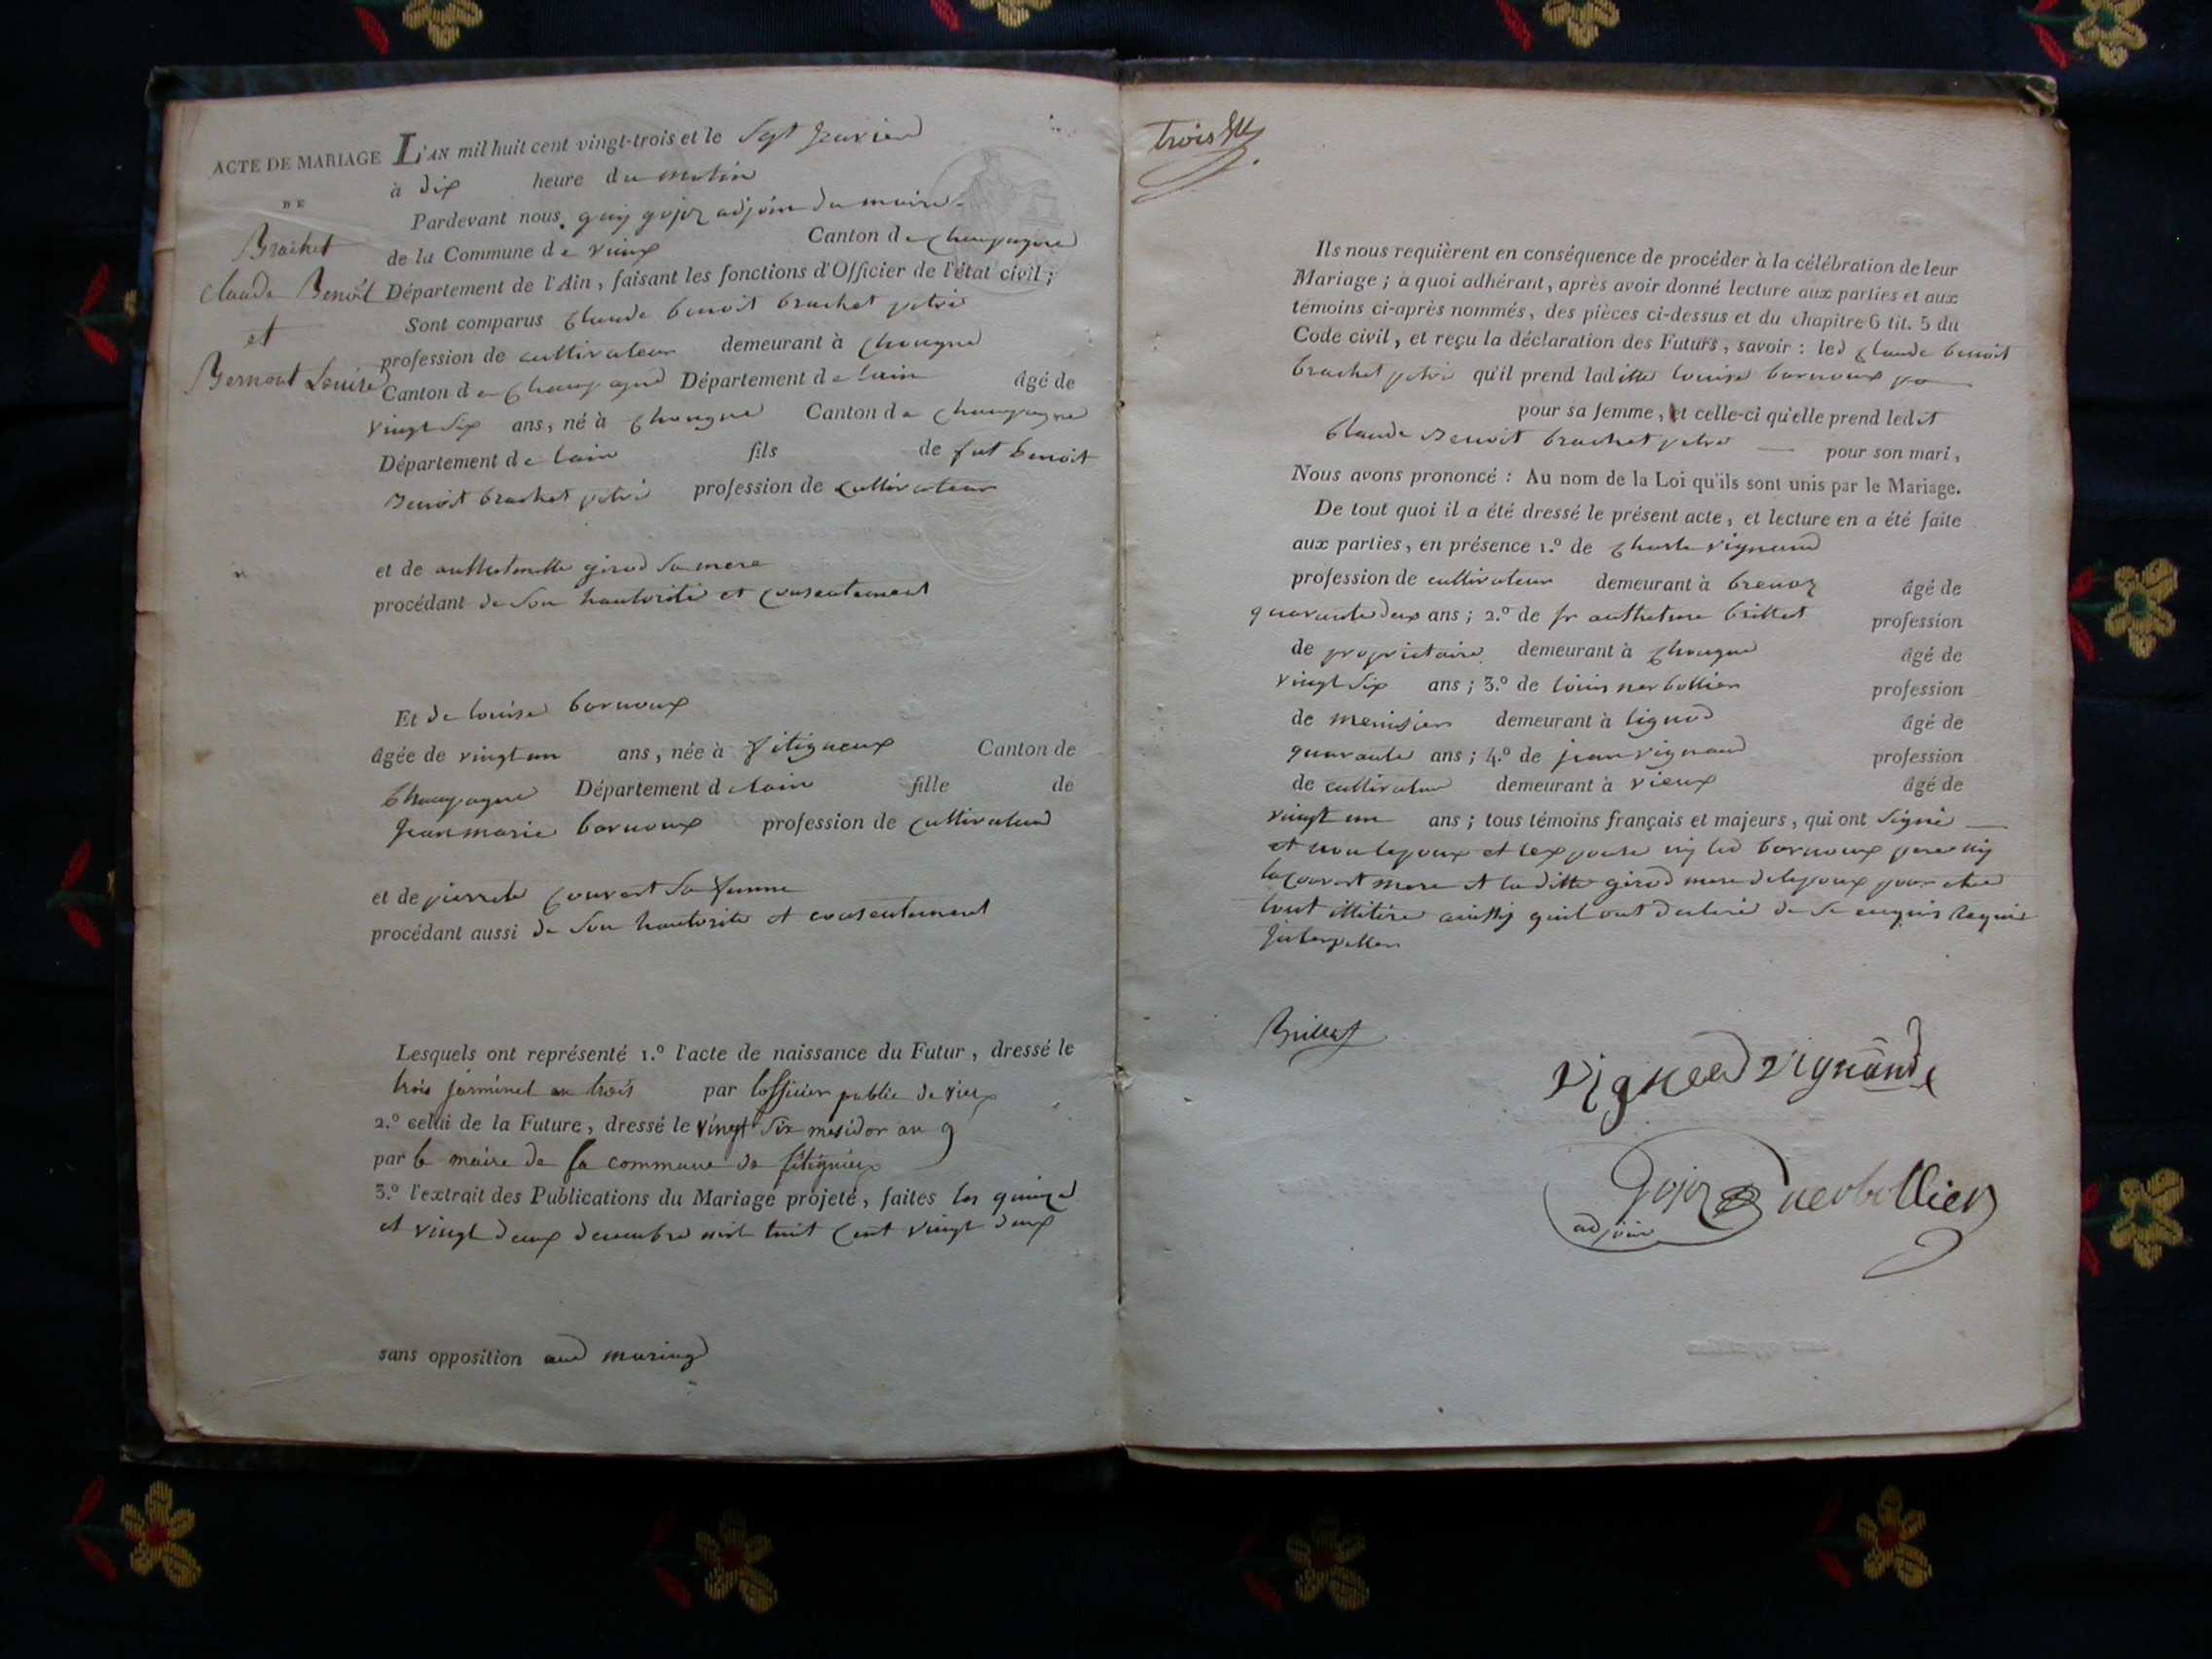 ACTE DE MARIAGE
DE
Brachet
Claude Benoît
et
Bernout Louise
L'AN mil huit cent vingt-trois et le Sept Janvier
à dix heure du matin
Pardevant nous guy gojoz adjoin du maire
de la Commune de vieux Canton de Champagne
Département de l'Ain, faisant les fonctions d'Officier de l'état civil;
Sont comparus Claude benoit brachet
profession de cultivateur demeurant à Chongne
Canton de Champagne Département de lain âgé de
vingt six ans, né à Chongne Canton de Champagne
Département de lain fils de fut benoit
Benoit brachet profession de cultivateur
et de girod sa mere
procédant de son hautorité et consentement
Et de louise bornoux
âgée de vingt un ans, née à fitignieux Canton de
Champagne Département de lain fille de
Jean marie bornoux profession de cultivateur
et de pierrete Convert sa femme
procédant aussi de son hautorite et consentement
Lesquels ont représenté 1.º l'acte de naissance du Futur, dressé le
trois jerminel an trois par lofficier public de vieux
2.º celui de la Future, dressé le vingt six mesidor an 9
par le maire de la commune de fitignieux
3.º l'extrait des Publications du Mariage projeté, faites les quinze
et vingt deux decembre mil huit Cent vingt deux
sans opposition aud mariage
trois
Ils nous requièrent en conséquence de procéder à la célébration de leur
Mariage; à quoi adhérant, après avoir donné lecture aux parties et aux
témoins ci-après nommés, des pièces ci-dessus et du chapitre 6 tit. 5 du
Code civil, et reçu la déclaration des Futurs, savoir: led Claude benoit
brachet qu'il prend laditte louise bornoux
pour sa femme, et celle-ci qu'elle prend ledit
Claude Benoit brachet pour son mari,
Nous avons prononcé: Au nom de la Loi qu'ils sont unis par le Mariage.
De tout quoi il a été dressé le présent acte, et lecture en a été faite
aux parties, en présence 1.º de Charle vignand
profession de cultivateur demeurant à brenaz âgé de
quarante deux ans; 2.º de fr anthelme brillat profession
de proprietaire demeurant à Chongne âgé de
vingt six ans; 3.º de louis nerbollier profession
de menisier demeurant à lignod âgé de
quarante ans; 4.º de jean vignand profession
de cultivateur demeurant à vieux âgé de
vingt un ans; tous témoins français et majeurs, qui ont signé
et non lepoux et lexpouse ny led bornoux pere ny
la Convert mere et laditte girod mere de lepoux pour etre
tout ilitire ainssy quil ont declaré de ce enquis requis
Interpeller
Brillat
vignand vignand
gojoz nerbollier
adjoin